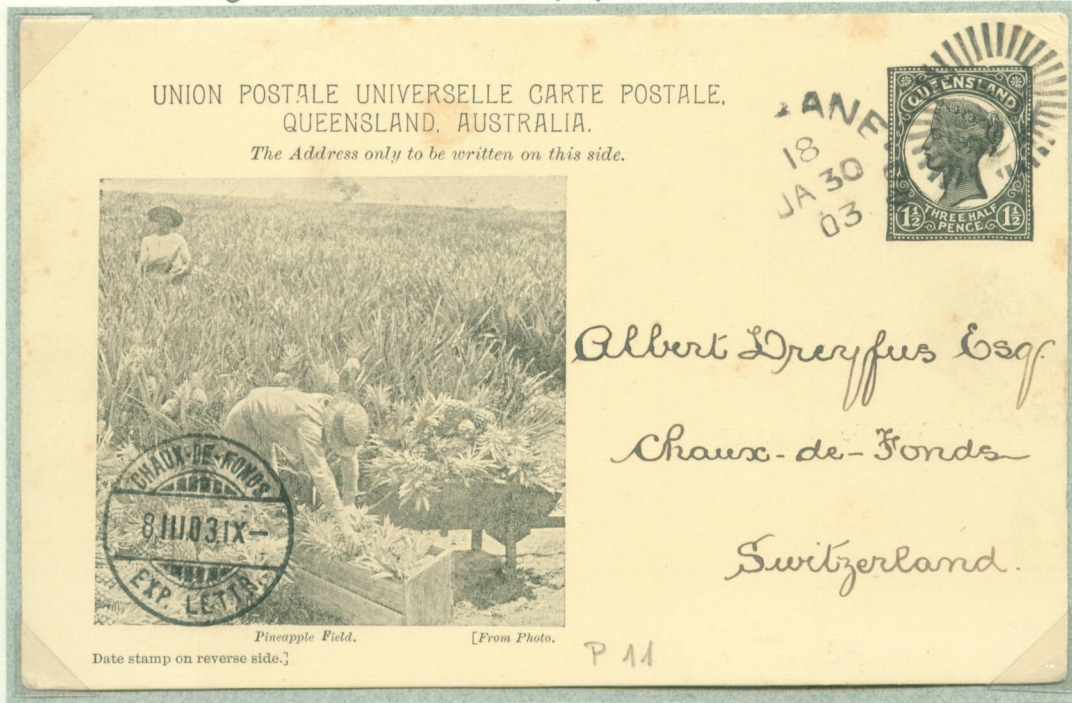 UNION POSTALE UNIVERSELLE CARTE POSTALE,
QUEENSLAND, AUSTRALIA.
The Address only to be written on this side.
ANE
18
JA 30
03
QUEENSLAND
THREE HALF
PENCE
1½ 1½
Albert Dreyfus Esq.
Chaux-de-Fonds
Switzerland.
CHAUX-DE-FONDS
8.III.03.IX-
EXP. LETTR.
Pineapple Field. [From Photo.
Date stamp on reverse side.]
P 11